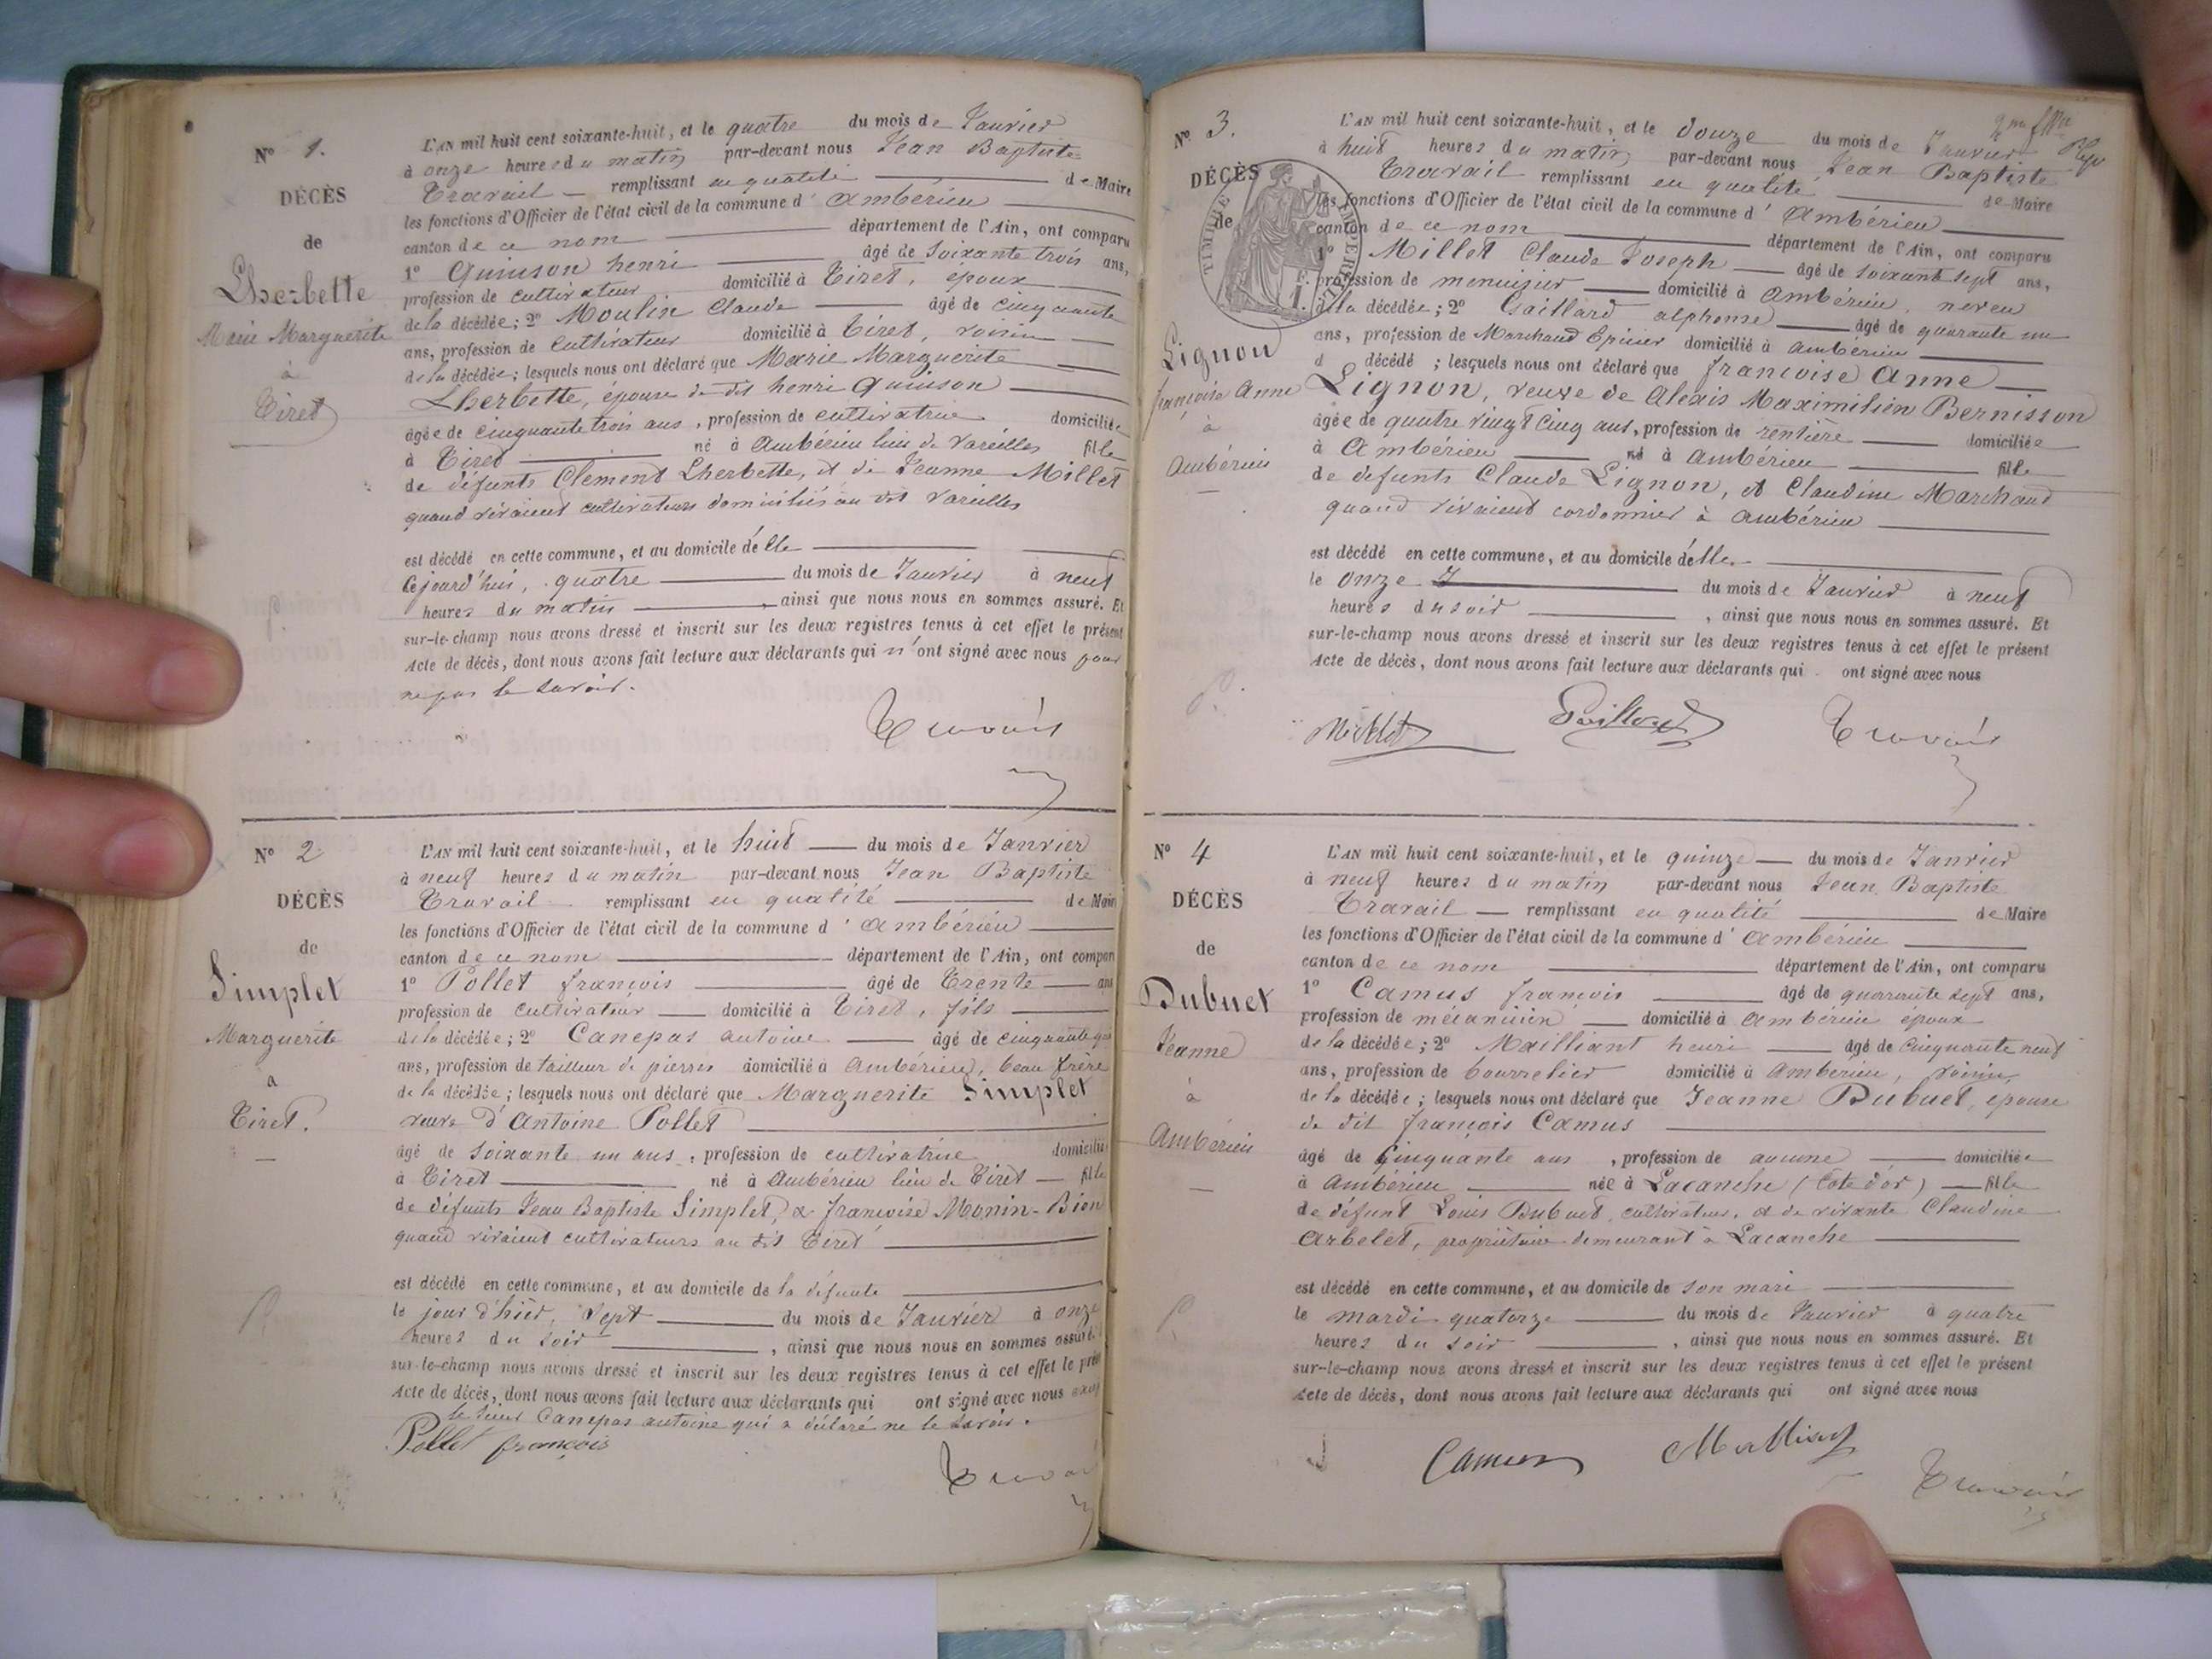 N° 1.
DÉCÈS
de
Lherbette
Marie Marguerite
à
Tiret
L'AN mil huit cent soixante-huit, et le quatre du mois de Janvier
à onze heures du matin par-devant nous Jean Baptiste
Travail — remplissant en qualité de Maire
les fonctions d'Officier de l'état civil de la commune d'Ambérieu
canton de ce nom département de l'Ain, ont comparu
1° Quinson henri âgé de Soixante trois ans,
profession de cultivateur domicilié à Tiret, époux
de la décédée; 2° Moulin Claude âgé de cinquante
ans, profession de cultivateur domicilié à Tiret, voisin
de la décédée; lesquels nous ont déclaré que Marie Marguerite
Lherbette, épouse de dit henri Quinson
âgée de cinquante trois ans, profession de cultivatrice domiciliée
à Tiret né à Ambérieu lieu de Vareilles fille
de défunts Clement Lherbette, et de Jeanne Millet
quand vivaient cultivateurs domiciliés au dit Vareilles
est décédé en cette commune, et au domicile d'elle
Cejourd'hui, quatre du mois de Janvier à neuf
heures du matin, ainsi que nous nous en sommes assuré. Et
sur-le-champ nous avons dressé et inscrit sur les deux registres tenus à cet effet le présent
Acte de décès, dont nous avons fait lecture aux déclarants qui n'ont signé avec nous pour
ne pas le savoir.
Travail
N° 2
DÉCÈS
de
Simplet
Marguerite
à
Tiret.
L'AN mil huit cent soixante-huit, et le huit du mois de Janvier
à neuf heures du matin par-devant nous Jean Baptiste
Travail remplissant en qualité de Maire
les fonctions d'Officier de l'état civil de la commune d'Ambérieu
canton de ce nom département de l'Ain, ont comparu
1° Pollet françois âgé de Trente ans
profession de cultivateur domicilié à Tiret, fils
de la décédée; 2° Canepas antoine âgé de cinquante
ans, profession de tailleur de pierres domicilié à Ambérieu, beau frère
de la décédée; lesquels nous ont déclaré que Marguerite Simplet
veuve d'Antoine Pollet
âgé de soixante un ans, profession de cultivatrice domiciliée
à Tiret né à Ambérieu lieu de Tiret fille
de défunts Jean Baptiste Simplet, & francoise Monin-Bion
quand vivaient cultivateurs au dit Tiret
est décédé en cette commune, et au domicile de la défunte
le jour d'hier, Sept du mois de Janvier à onze
heures du soir, ainsi que nous nous en sommes assuré.
sur-le-champ nous avons dressé et inscrit sur les deux registres tenus à cet effet le présent
Acte de décès, dont nous avons fait lecture aux déclarants qui ont signé avec nous
le sieur Canepas antoine qui a déclaré ne le savoir.
Pollet françois
Travail
N° 3.
DÉCÈS
de
TIMBRE IMPÉRIAL
Lignon
françoise Anne
à
Ambérieu
L'AN mil huit cent soixante-huit, et le douze du mois de Janvier
à huit heures du matin par-devant nous Jean Baptiste
Travail remplissant en qualité de Maire
les fonctions d'Officier de l'état civil de la commune d'Ambérieu
canton de ce nom département de l'Ain, ont comparu
1° Millet Claude Joseph âgé de soixante sept ans,
profession de menuisier domicilié à Ambérieu, neveu
de la décédée; 2° Gaillard alphonse âgé de quarante un
ans, profession de Marchand Epicier domicilié à Ambérieu
d décédé ; lesquels nous ont déclaré que francoise Anne
Lignon, veuve de Alexis Maximilien Bernisson
âgée de quatre vingt cinq ans, profession de rentière domiciliée
à Ambérieu né à Ambérieu fille
de defunts Claude Lignon, et Claudine Marchand
quand vivaient cordonnier à Ambérieu
est décédé en cette commune, et au domicile d'elle
le onze du mois de Janvier à neuf
heures du soir, ainsi que nous nous en sommes assuré. Et
sur-le-champ nous avons dressé et inscrit sur les deux registres tenus à cet effet le présent
Acte de décès, dont nous avons fait lecture aux déclarants qui ont signé avec nous
Millet Gaillard Travail
N° 4
DÉCÈS
de
Dubuet
Jeanne
à
Ambérieu
L'AN mil huit cent soixante-huit, et le quinze du mois de Janvier
à neuf heures du matin par-devant nous Jean Baptiste
Travail — remplissant en qualité de Maire
les fonctions d'Officier de l'état civil de la commune d'Ambérieu
canton de ce nom département de l'Ain, ont comparu
1° Camus françois âgé de quarante sept ans,
profession de mécanicien domicilié à Ambérieu époux
de la décédée; 2° Mailliant henri âgé de cinquante neuf
ans, profession de bourrelier domicilié à Ambérieu, voisin,
de la décédée; lesquels nous ont déclaré que Jeanne Dubuet, épouse
de dit françois Camus
âgé de Cinquante ans, profession de aucune domiciliée
à Ambérieu née à Lacanche (Côte d'or) fille
de défunt Louis Dubuet, cultivateur, et de vivante Claudine
Arbelet, propriétaire demeurant à Lacanche
est décédé en cette commune, et au domicile de son mari
le mardi quatorze du mois de Janvier à quatre
heures du soir, ainsi que nous nous en sommes assuré. Et
sur-le-champ nous avons dressé et inscrit sur les deux registres tenus à cet effet le présent
Acte de décès, dont nous avons fait lecture aux déclarants qui ont signé avec nous
Camus Mailliant Travail